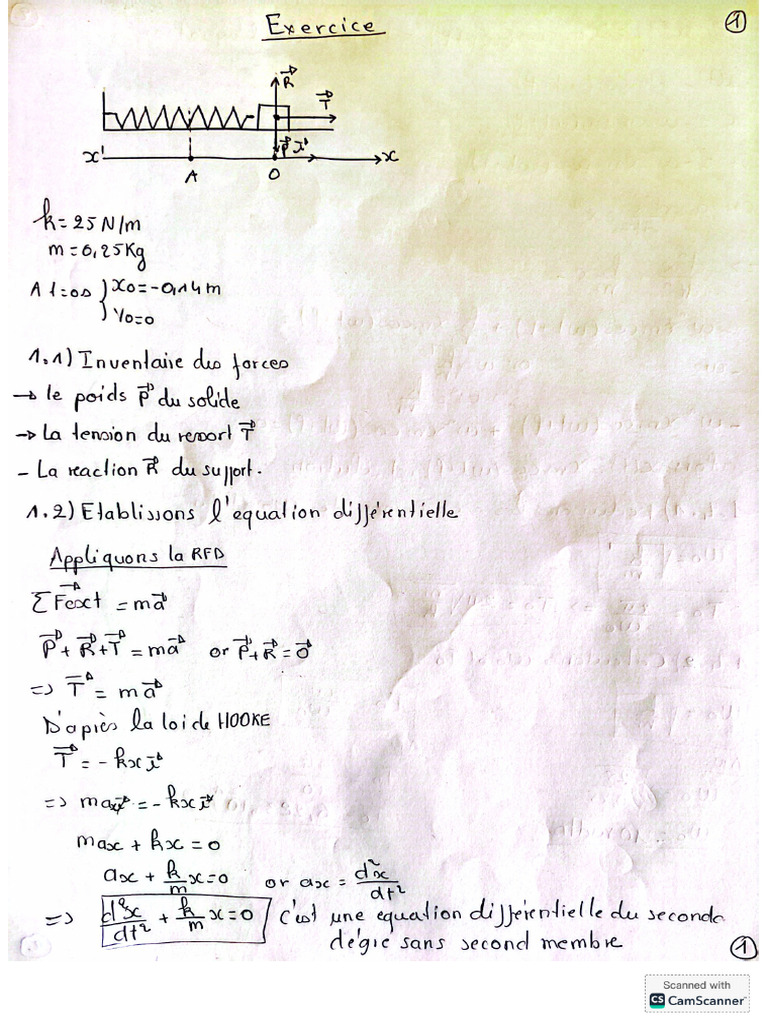 Exercice
1
R
T
P i
x' x
A O
k = 25 N/m
m = 0,25 Kg
A t=0s { x0 = -0,14 m
V0 = 0
1.1) Inventaire des forces
→ le poids P du solide
→ La tension du ressort T
- La reaction R du support.
1.2) Etablissons l'equation différentielle
Appliquons la RFD
ΣFext = ma
P + R + T = ma or P + R = 0
=> T = ma
D'après la loi de HOOKE
T = - kx i
=> max i = - kx i
max + kx = 0
ax + k/m x = 0 or ax = d²x/dt²
=> d²x/dt² + k/m x = 0 C'est une equation différentielle du seconde
dégré sans second membre
1
Scanned with
CS CamScanner